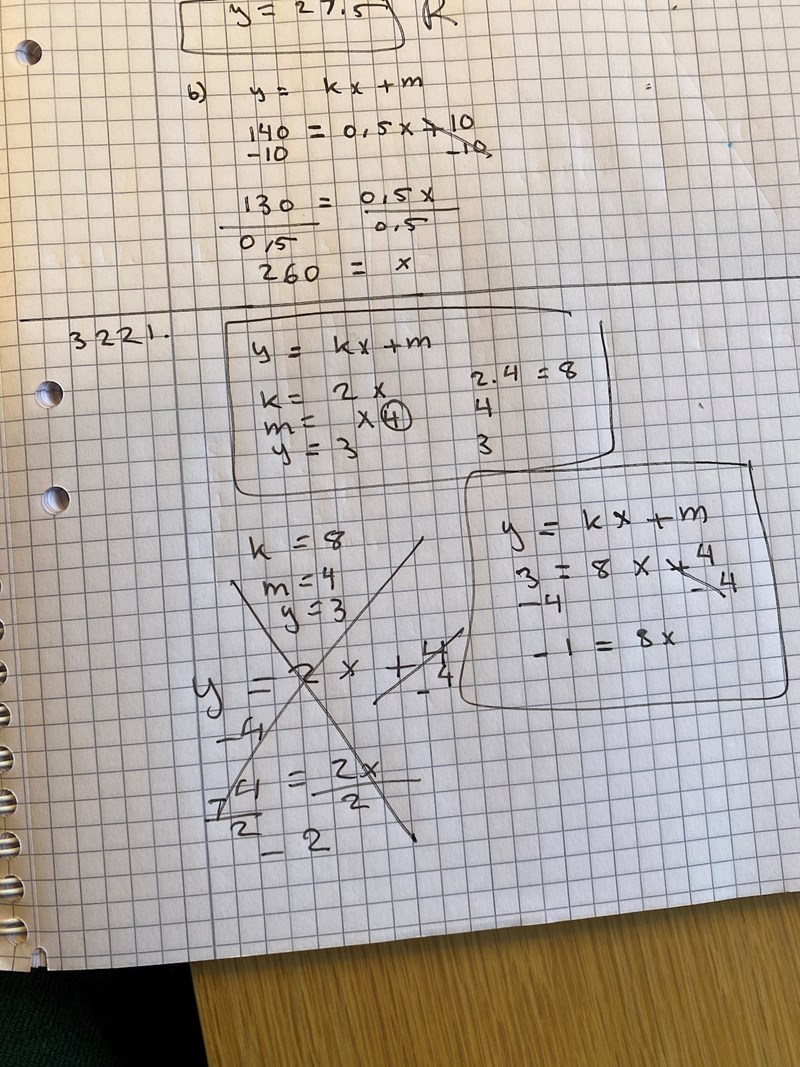 y = 27.5 R
b) y = kx + m
140 = 0,5x + 10
-10 -10
130 = 0,5x
0,5 0,5
260 = x
3221.
y = kx + m
k = 2x 2·4 = 8
m = x 4 4
y = 3 3
k = 8
m = 4
y = 3
y = 2x + 4
-4 -4
-4 = 2x
2 2
-2
y = kx + m
3 = 8x + 4
-4 -4
-1 = 8x